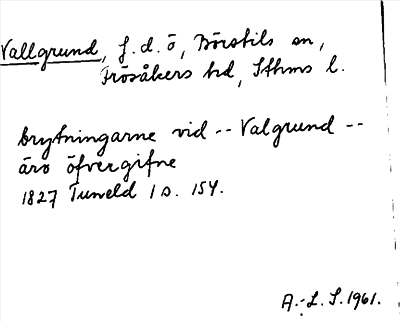 Vallgrund, f.d. ö, Börstils sn,
Frösåkers hd, Sthms l.
brytningarne vid -- Valgrund --
äro öfvergifne
1827 Tuneld 1 s. 154.
A.-L. S. 1961.